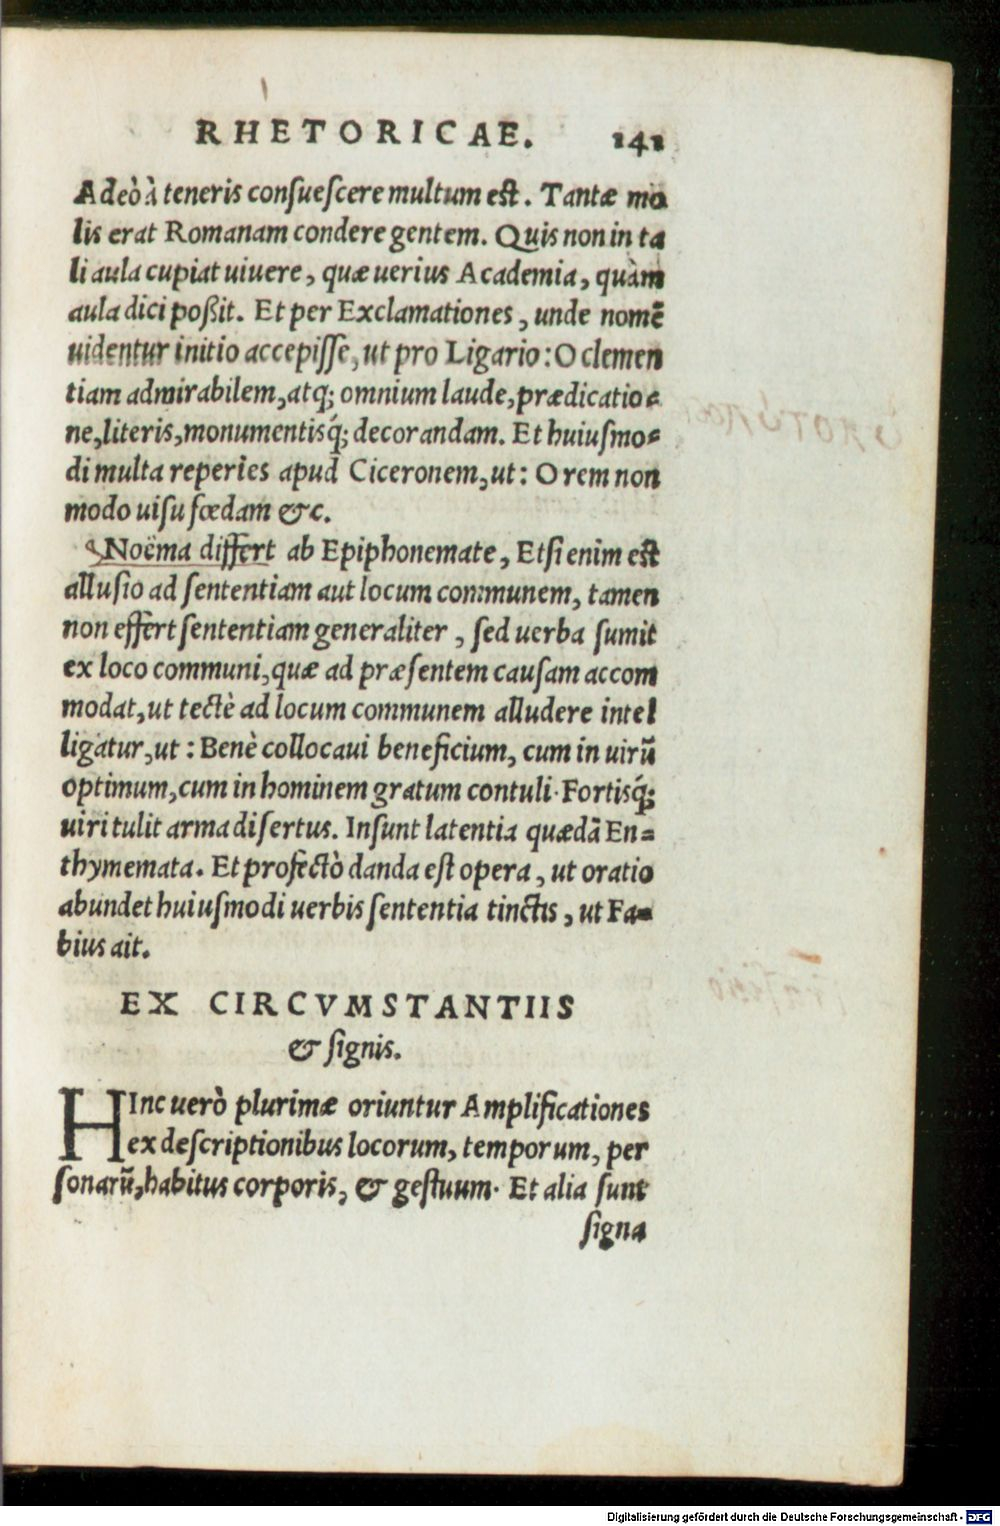 RHETORICAE. 141
Adeò à teneris consuescere multum est. Tantæ mo
lis erat Romanam condere gentem. Quis non in ta
li aula cupiat uiuere, quæ uerius Academia, quàm
aula dici poßit. Et per Exclamationes, unde nomē
uidentur initio accepisse, ut pro Ligario: O clemen
tiam admirabilem, atq; omnium laude, prædicatio-
ne, literis, monumentisq́; decorandam. Et huiusmo-
di multa reperies apud Ciceronem, ut: O rem non
modo uisu fœdam &c.
Noëma differt ab Epiphonemate, Etsi enim est
allusio ad sententiam aut locum communem, tamen
non effert sententiam generaliter, sed uerba sumit
ex loco communi, quæ ad præsentem causam accom
modat, ut tectè ad locum communem alludere intel
ligatur, ut: Benè collocaui beneficium, cum in uirū
optimum, cum in hominem gratum contuli. Fortisq́;
uiri tulit arma disertus. Insunt latentia quædā En-
thymemata. Et profectò danda est opera, ut oratio
abundet huiusmodi uerbis sententia tinctis, ut Fa-
bius ait.
EX CIRCVMSTANTIIS
& signis.
HInc uerò plurimæ oriuntur Amplificationes
ex descriptionibus locorum, temporum, per
sonarū, habitus corporis, & gestuum. Et alia sunt
signa
Digitalisierung gefördert durch die Deutsche Forschungsgemeinschaft - DFG